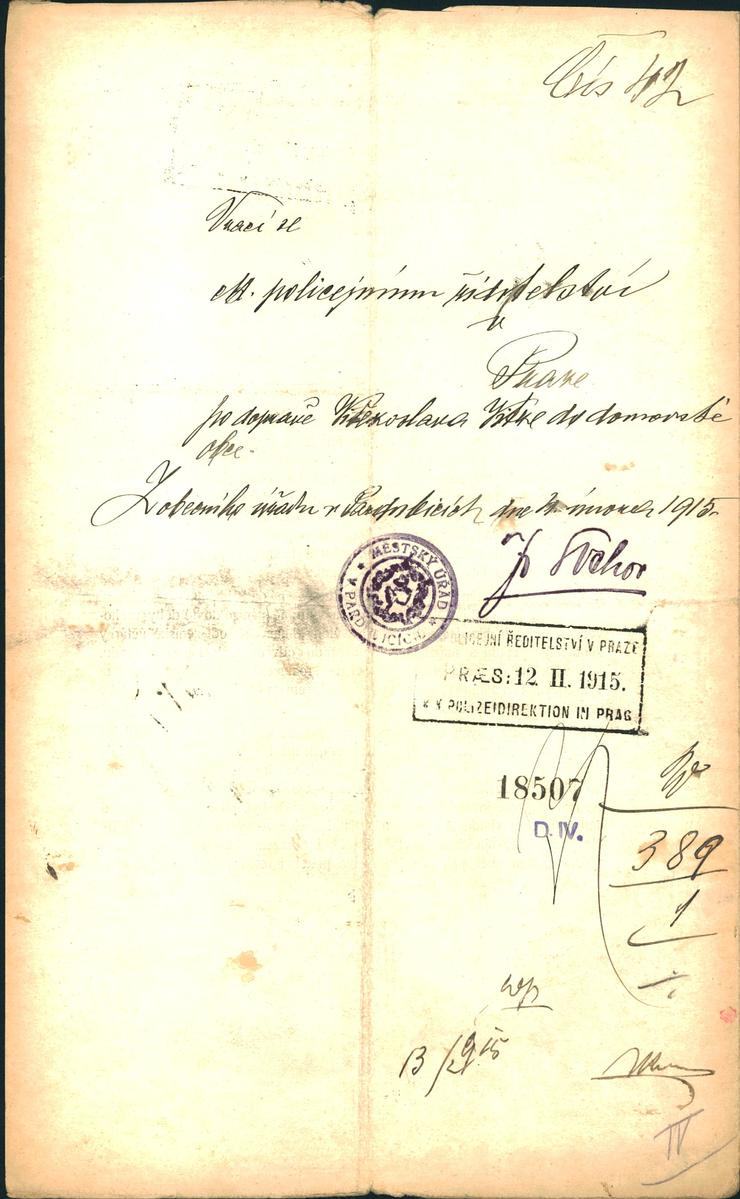 Čís 42
Vrací se
sl. policejnímu ředitelství
v
Praze
po dopravě Vítězoslava do domovské
obce.
Z obecního úřadu v Pardubicích dne února 1915
MĚSTSKÝ ÚŘAD
V PARDUBICÍCH
POLICEJNÍ ŘEDITELSTVÍ V PRAZE
PRÆS: 12. II. 1915.
K K POLIZEIDIREKTION IN PRAG
18507
D. IV.
389
1
13/2 915
IV